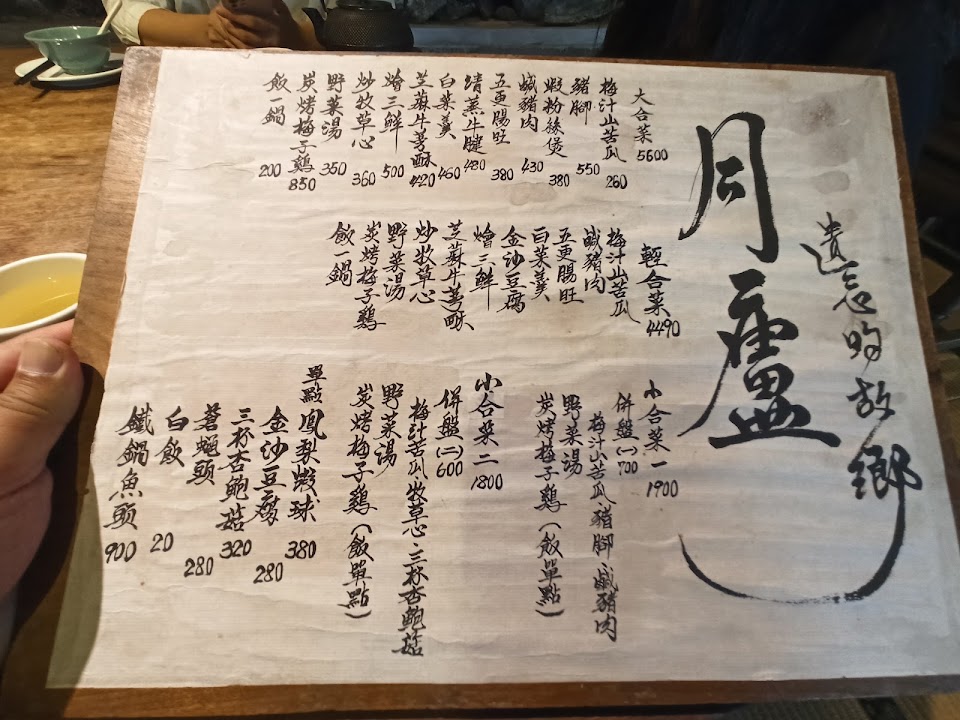 月廬
遺忘的故鄉
大合菜 5600
梅汁山苦瓜 260
豬腳 550
蝦粉絲煲 380
鹹豬肉 430
五更腸旺 380
清蒸牛腱 480
白菜羹 460
芝蔴牛蒡酥 420
燴三鮮 500
炒牧草心 360
野菜湯 350
炭烤梅子鷄 850
飯一鍋 200
輕合菜 4490
梅汁山苦瓜
鹹豬肉
五更腸旺
白菜羹
金沙豆腐
燴三鮮
芝蔴牛蒡酥
炒牧草心
野菜湯
炭烤梅子鷄
飯一鍋
小合菜一 1900
併盤(一)700
梅汁山苦瓜豬腳鹹豬肉
野菜湯
炭烤梅子鷄(飯單點)
小合菜二 1800
併盤(二)600
梅汁苦瓜牧草心·三杯杏鮑菇
野菜湯
炭烤梅子鷄(飯單點)
單點
鳳梨蝦球 380
金沙豆腐 280
三杯杏鮑菇 320
蒼蠅頭 280
白飯 20
鐵鍋魚頭 900